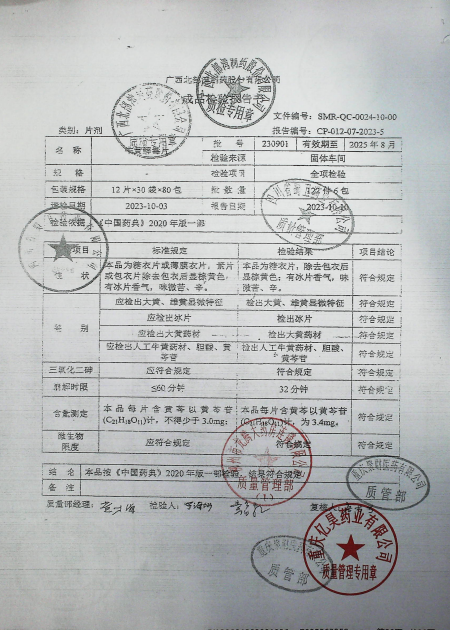 广西北部湾制药股份有限公司
成品检验报告
文件编号: SMR-QC-0024-10-00
类别: 片剂
报告编号: CP-012-07-2023-5
名 称 牛黄解毒片 批 号 230901 有效期至 2025年8月
检验来源 固体车间
规 格 检验项目 全项检验
包装规格 12片×30袋×80包 批 数 量 122件6包
检验日期 2023-10-03 报告日期 2023-10-10
检验依据 《中国药典》2020年版一部
项目 标准规定 检验结果 项目结论
性 状 本品为糖衣片或薄膜衣片, 素片或包衣片除去包衣后显棕黄色; 有冰片香气, 味微苦、辛。 本品为糖衣片, 除去包衣后显棕黄色; 有冰片香气, 味微苦、辛。 符合规定
鉴 别 应检出大黄、雄黄显微特征 检出大黄、雄黄显微特征 符合规定
应检出冰片 检出冰片 符合规定
应检出大黄药材 检出大黄药材 符合规定
应检出人工牛黄药材、胆酸、黄芩苷 检出人工牛黄药材、胆酸、黄芩苷 符合规定
三氧化二砷 应符合规定 符合规定 符合规定
崩解时限 ≤60分钟 32分钟 符合规定
含量测定 本品每片含黄芩以黄芩苷(C₂₁H₁₈O₁₁)计, 不得少于3.0mg。 本品每片含黄芩以黄芩苷(C₂₁H₁₈O₁₁)计, 为3.4mg。 符合规定
微生物限度 应符合规定 符合规定 符合规定
结 论 本品按《中国药典》2020年版一部检验, 结果符合规定
备 注
质量部经理: 检验人: 复核人:
质检专用章
质量管理部
质量管理部
(1)
质管部
重庆亿昊药业有限公司
质量管理专用章
质管部